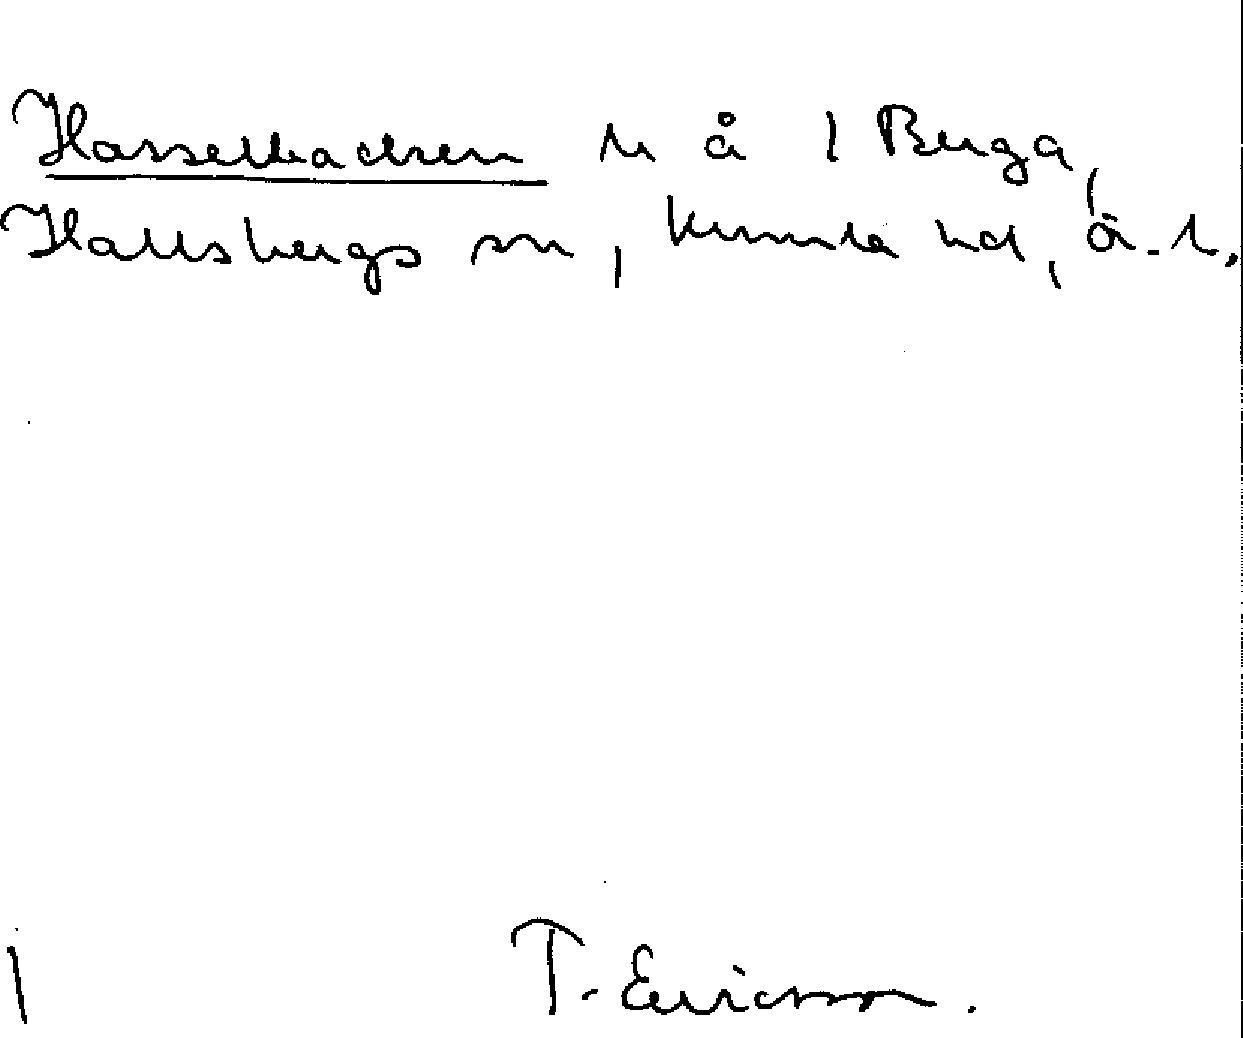 Hasselbacken u å 1 Berga,
Hallsbergs sn, Kumla hd, ö. l.
T. Ericsson.